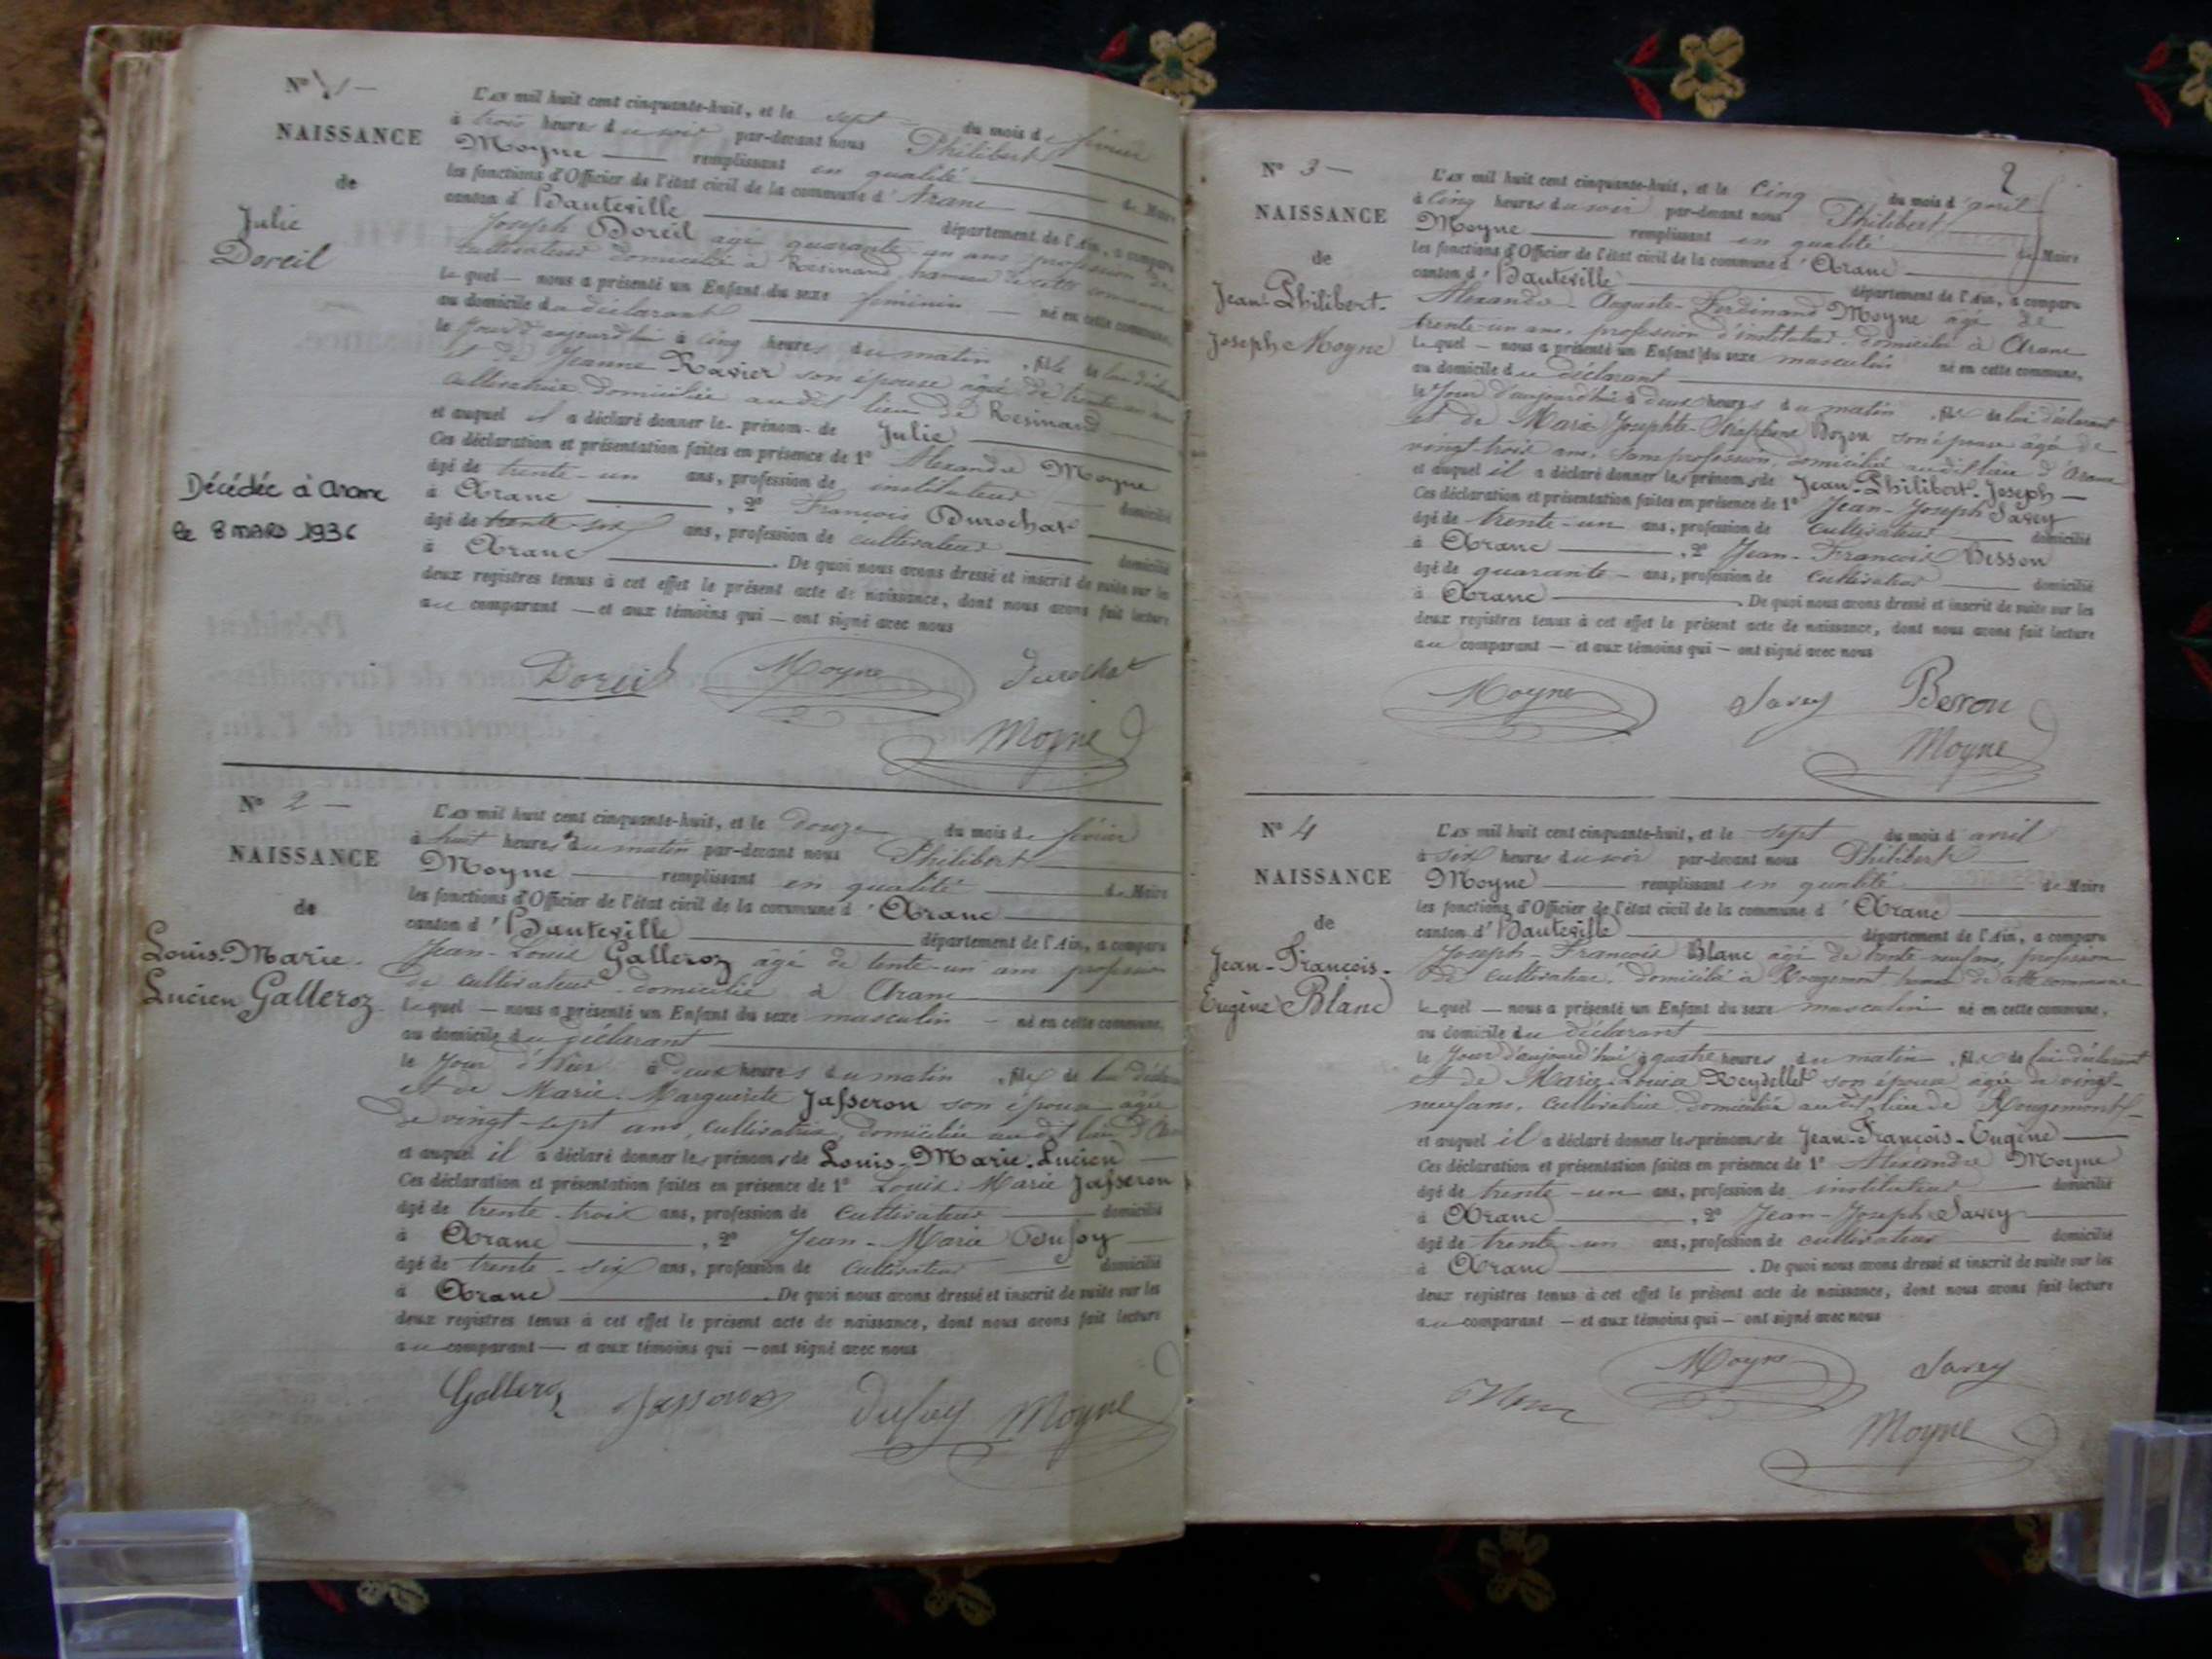 N° 1 —
NAISSANCE
de
Julie
Doreil
Décédée à Aranc
le 8 MARS 1936
L'an mil huit cent cinquante-huit, et le sept du mois de février
à trois heures du soir par-devant nous Philibert
Moyne remplissant en qualité de Maire
les fonctions d'Officier de l'état civil de la commune d'Aranc
canton d'Hauteville département de l'Ain, a comparu
Joseph Doreil agé quarante-un ans profession de
cultivateur domicilié à Resinand hameau de cette commune
Lequel — nous a présenté un Enfant du sexe féminin — né en cette commune,
au domicile du déclarant
le jour d'aujourd'hui à cinq heures du matin, fille de lui déclarant
et de Jeanne Ravier son épouse âgée de trente
cultivatrice domiciliée audit lieu de Resinand
et auquel il a déclaré donner le prénom de Julie
Ces déclaration et présentation faites en présence de 1° Alexandre Moyne
âgé de trente-un ans, profession de instituteur domicilié
à Aranc, 2° François Durochat
âgé de trente-six ans, profession de cultivateur domicilié
à Aranc. De quoi nous avons dressé et inscrit de suite sur les
deux registres tenus à cet effet le présent acte de naissance, dont nous avons fait lecture
au comparant — et aux témoins qui — ont signé avec nous
Doreil Moyne Durochat
Moyne
N° 2 —
NAISSANCE
de
Louis-Marie-
Lucien Galleroz
L'an mil huit cent cinquante-huit, et le douze du mois de février
à huit heures du matin par-devant nous Philibert
Moyne remplissant en qualité de Maire
les fonctions d'Officier de l'état civil de la commune d'Aranc
canton d'Hauteville département de l'Ain, a comparu
Jean-Louis Galleroz âgé de trente-un ans profession
de cultivateur domicilié à Aranc
Lequel — nous a présenté un Enfant du sexe masculin — né en cette commune,
au domicile du déclarant
le jour d'hier à deux heures du matin, fils de lui déclarant
et de Marie-Marguerite Jasseron son épouse âgée
de vingt-sept ans, cultivatrice, domiciliée audit lieu d'Aranc
et auquel il a déclaré donner les prénoms de Louis-Marie-Lucien
Ces déclaration et présentation faites en présence de 1° Louis-Marie Jasseron
âgé de trente-trois ans, profession de cultivateur domicilié
à Aranc, 2° Jean-Marie Dufoy
âgé de trente-six ans, profession de cultivateur domicilié
à Aranc. De quoi nous avons dressé et inscrit de suite sur les
deux registres tenus à cet effet le présent acte de naissance, dont nous avons fait lecture
au comparant — et aux témoins qui — ont signé avec nous
Galleroz Jasseron Dufoy Moyne
2
N° 3 —
NAISSANCE
de
Jean-Philibert-
Joseph Moyne
L'an mil huit cent cinquante-huit, et le cinq du mois d'avril
à cinq heures du soir par-devant nous Philibert
Moyne remplissant en qualité de Maire
les fonctions d'Officier de l'état civil de la commune d'Aranc
canton d'Hauteville département de l'Ain, a comparu
Alexandre-Auguste-Ferdinand Moyne âgé de
trente-un ans, profession d'instituteur domicilié à Aranc
Lequel — nous a présenté un Enfant du sexe masculin né en cette commune,
au domicile du déclarant
le jour d'aujourd'hui à deux heures du matin, fils de lui déclarant
et de Marie Josephte Séraphine son épouse âgée de
vingt-trois ans, sans profession, domiciliée audit lieu d'Aranc
et auquel il a déclaré donner les prénoms de Jean-Philibert-Joseph —
Ces déclaration et présentation faites en présence de 1° Jean-Joseph Savey
âgé de trente-un ans, profession de cultivateur domicilié
à Aranc, 2° Jean-François Besson
âgé de quarante — ans, profession de cultivateur domicilié
à Aranc. De quoi nous avons dressé et inscrit de suite sur les
deux registres tenus à cet effet le présent acte de naissance, dont nous avons fait lecture
au comparant — et aux témoins qui — ont signé avec nous
Moyne Savey Besson
Moyne
N° 4
NAISSANCE
de
Jean-François-
Eugène Blanc
L'an mil huit cent cinquante-huit, et le sept du mois d'avril
à six heures du soir par-devant nous Philibert
Moyne remplissant en qualité de Maire
les fonctions d'Officier de l'état civil de la commune d'Aranc
canton d'Hauteville département de l'Ain, a comparu
Joseph-François Blanc âgé de trente-neuf ans, profession
de cultivateur, domicilié à Rougemont hameau de cette commune
Lequel — nous a présenté un Enfant du sexe masculin né en cette commune,
au domicile du déclarant
le jour d'aujourd'hui à quatre heures du matin, fils de lui déclarant
et de Marie-Louise Reydellet son épouse âgée de vingt-
neuf ans, cultivatrice domiciliée audit lieu de Rougemont
et auquel il a déclaré donner les prénoms de Jean-François-Eugène
Ces déclaration et présentation faites en présence de 1° Alexandre Moyne
âgé de trente-un ans, profession de instituteur domicilié
à Aranc, 2° Jean-Joseph Savey
âgé de trente-un ans, profession de cultivateur domicilié
à Aranc. De quoi nous avons dressé et inscrit de suite sur les
deux registres tenus à cet effet le présent acte de naissance, dont nous avons fait lecture
au comparant — et aux témoins qui — ont signé avec nous
Blanc Moyne Savey
Moyne